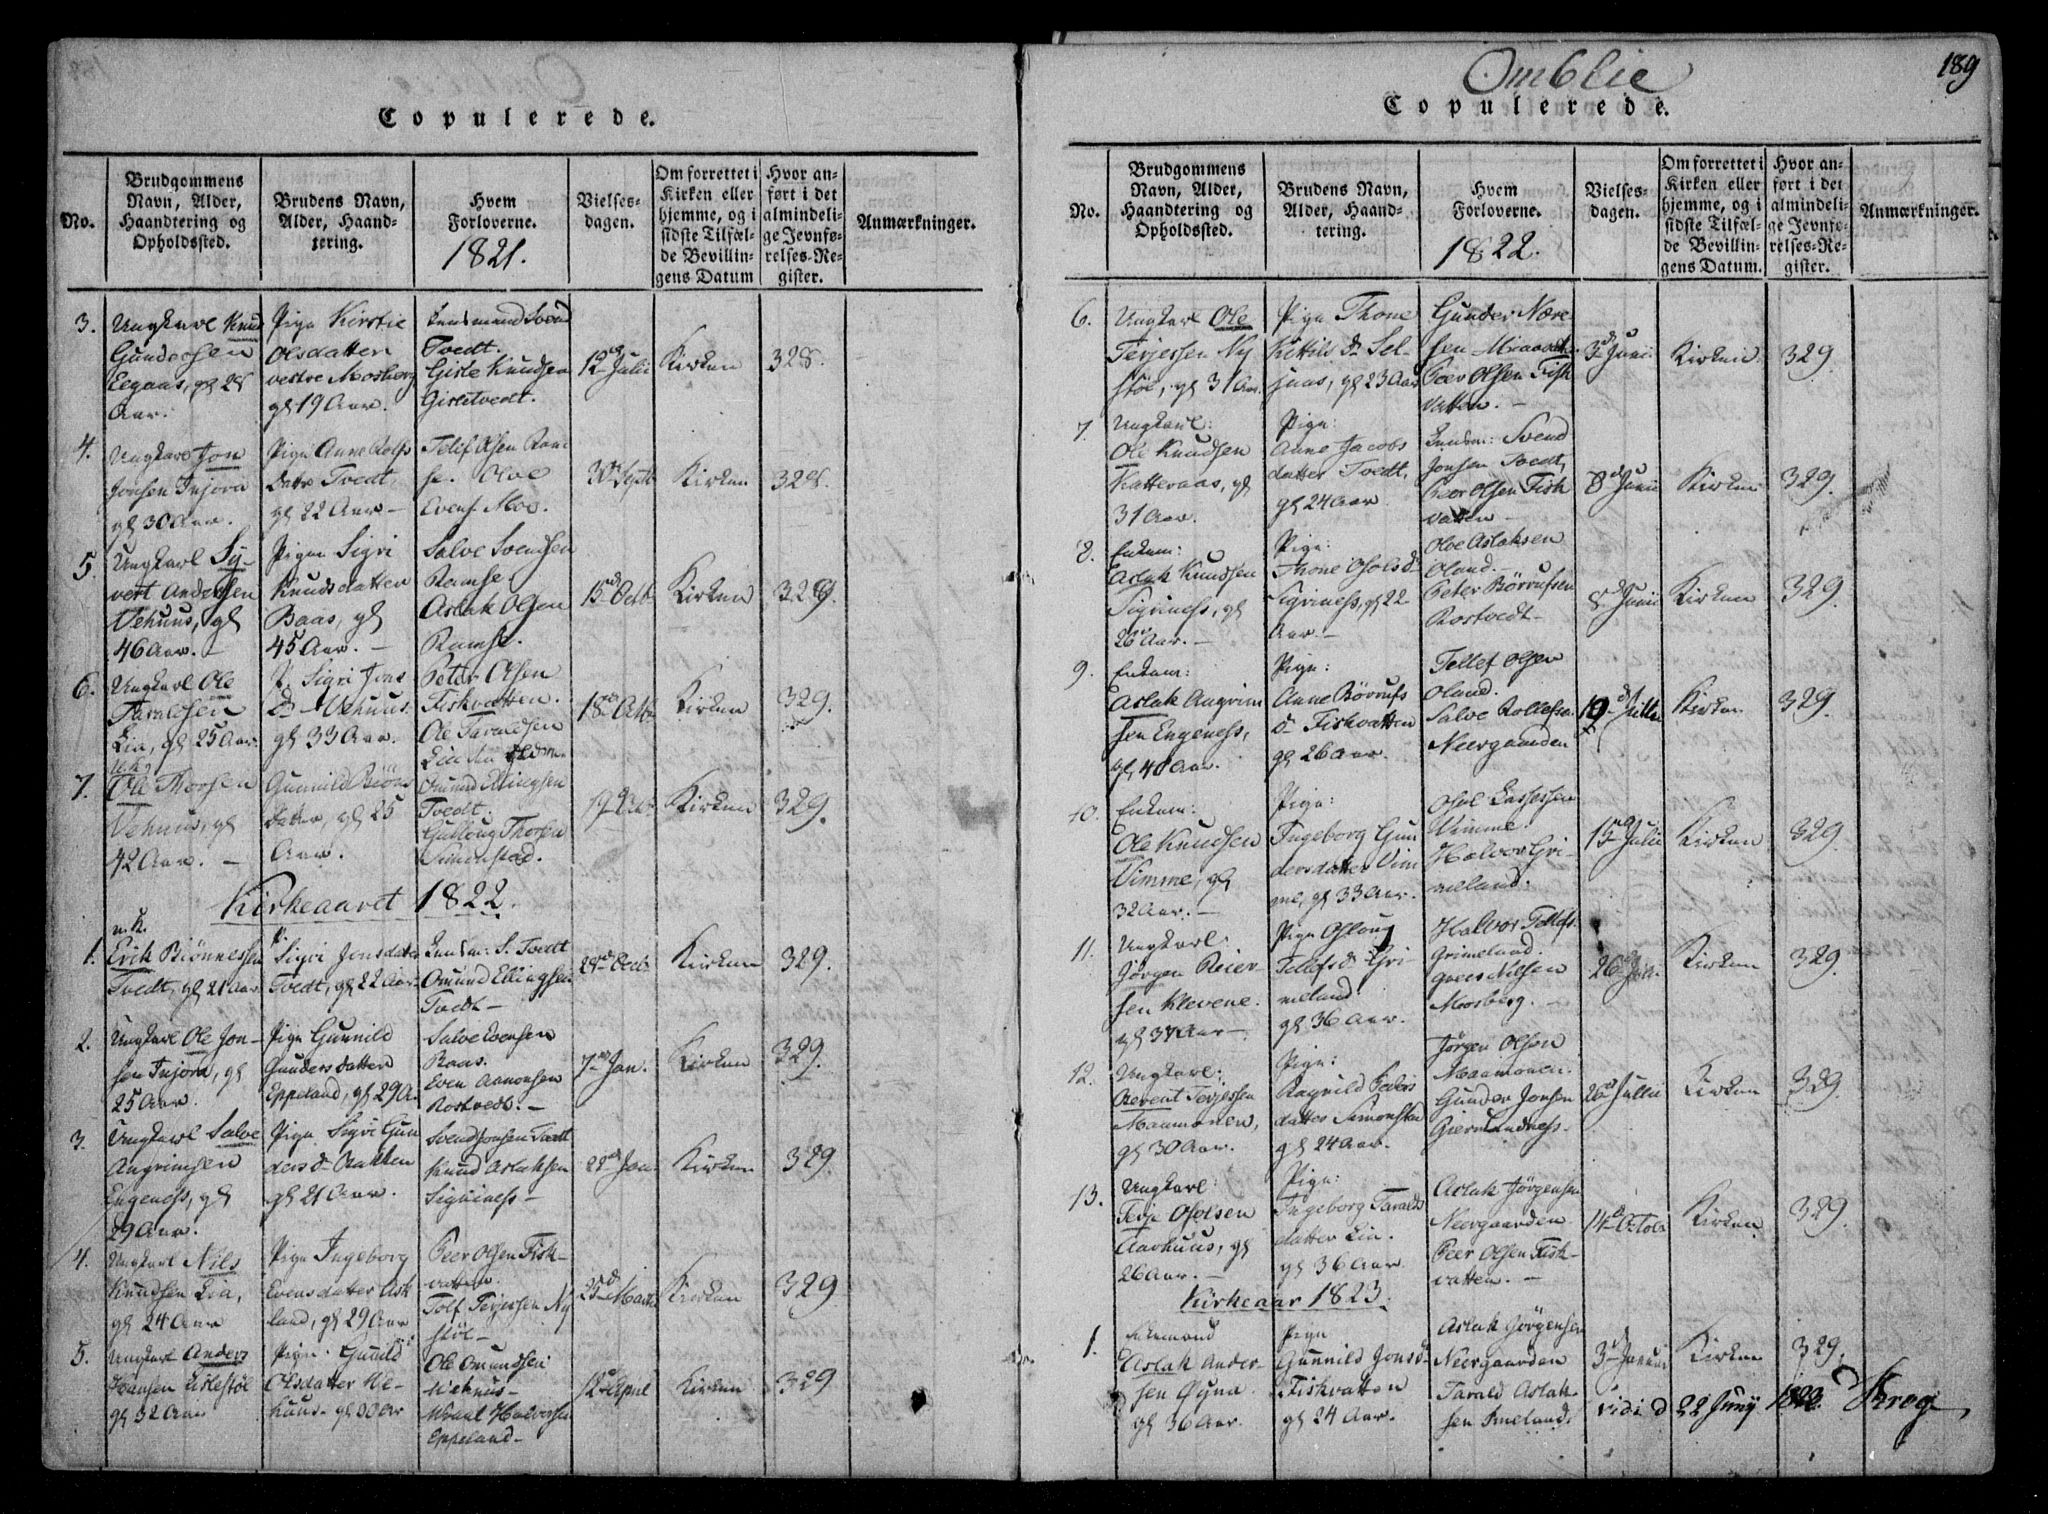 Copulerede.
No.
Brudgommens
Navn, Alder,
Haandtering og
Opholdssted.
Brudens Navn,
Alder, Haand-
tering.
Hvem
Forloverne.
1821.
Vielses-
dagen.
Om forrettet i
Kirken eller
hjemme, og i
sidste Tilfæl-
de Bevillin-
gens Datum
Hvor an-
ført i det
almindeli-
ge Jevnfø-
relses-Re-
gister.
Anmærkninger.
3.
Ungkarl Knud
Gundersen
Eegaas, gl 28
Aar.
Pige Kirstie
Olsdatter
vestre Mosberg
gl 19 Aar.
Lensmand Svend
Tvedt.
Girle Knudsen
Girletvedt.
12 Julii
Kirken
328.
4.
Ungkarl Jon
Jonsen Injora
gl 30 Aar.
Pige Anne Rolfs
datter Tvedt,
gl 22 Aar –
Telif Olsen Ram
se. Olve
Evens. Moe.
30 Sept
Kirken
328.
5.
Ungkarl Sy-
vert Andersen
Vehuus, gl
46 Aar. –
Pigen Sigri
Knudsdatter
Baas, gl
45 Aar. –
Salve Svendsen
Ramse
Aslak Olsen
Ramse.
15 Octb
Kirken
329.
6.
Ungkarl Ole
Taraldsen
Lia, gl 25 Aar.
P. Sigri Jons
D. Vehuus.
gl 33 Aar.
Peter Olsen
Fiskvatten.
Ole Taraldsen
Lia
18 Octb
Kirken
329.
7.
Ole Thorsen
Vehuus, gl
42 Aar. –
Gunnild Biörns
datter, gl 25
Aar.
Omund Ellingsen
Tvedt.
Gulloug Thorsen
Simonstad.
19 Oct
Kirken
329.
Kirkeaaret 1822.
1.
u.k.
Erik Biönnessen
Tvedt, gl 21 Aar
P.
Sigri Jonsdatter
Tvedt, gl 22 Aar
Lensm: S. Tvedt
Omund Ellingsen
Tvedt –
28 Octb
Kirken
329.
2.
Ungkarl Ole Jon-
sen Injora, gl
25 Aar.
Pige Gunnild
Gundersdatter
Eppeland, gl 29 A.
Salve Evensen
Baas.
Even Aamonsen
Rostvedt. –
7 Jan.
Kirken
329.
3.
Ungkarl Salve
Angrimsen
Engeness, gl
29 Aar.
Pige. Sigri Gun
dersd. Rakken
gl 21 Aar.
Svend Jonsen Tvedt
Knud Aslaksen
Sigriness –
28 Jan.
Kirken
329.
4.
Ungkarl Nils
Knudsen Lia,
gl 24 Aar
Pige Ingeborg
Evensdatter Ask
land, gl 29 Aar
Peer Olsen Fisk-
vatten.
Tolf Terjesen Ny
støl –
25 Marts
Kirken
329
5.
Ungkarl Anders
Hansen Lislestöl
gl 32 Aar
Pige. Gunild
Olsdatter Ve-
huus. gl 30 Ar
Ole Omundsen
Vehuus –
Halvorsen
Eppeland –
12 April
Kirken
329
Omblie
189
Copulerede.
No.
Brudgommens
Navn, Alder,
Haandtering og
Opholdssted.
Brudens Navn,
Alder, Haand-
tering.
Hvem
Forloverne.
1822.
Vielses-
dagen.
Om forrettet i
Kirken eller
hjemme, og i
sidste Tilfæl-
de Bevillin-
gens Datum.
Hvor an-
ført i det
almindeli-
ge Jevnfø-
relses-Re-
gister.
Anmærkninger.
6.
Ungkarl Ole
Terjessen Ny
støl, gl 31 Aar.
Pige Thone
Kittils D. Sel-
juas, gl 23 Aar
Gunder Nære
sen
Peer Olsen Fisk
vatten. –
3 Junii
Kirken
329.
7.
Ungkarl:
Ole Knudsen
Katteraas, gl
31 Aar.
Pige:
Anne Jacobs
datter Tvedt,
gl 24 Aar
Lensm: Svend
Jonsen Tvedt,
Peer Olsen Fisk
vatten –
8 Junii
Kirken
329.
8.
Enkem:
Aslak Knudsen
Sigriness, gl
26 Aar. –
Pige:
Thone Osols d.
Sigriness, gl 22
Aar. –
Olve Aslaksen
Oland. –
Peter Börrufsen
Rostvedt –
8 Junii
Kirken
329.
9.
Enkem:
Aslak Angrim
sen Engeness,
gl 40 Aar.
Pige:
Anne Börrufs
d. Fiskvatten
gl 26 Aar.
Tellef Olsen
Oland.
Salve Rollefsen
Neergaarden
19 Julii
Kirken
329.
10.
Enkem:
Ole Knudsen
Vimme, gl
32 Aar. –
Pige:
Ingeborg Gun
dersdatter Vim
me, gl 33 Aar.
Osol Lassessen
Vimme.
Halvor Gri-
meland.
15 Julii
Kirken
329.
11.
Ungkarl:
Jørgen Reier-
sen Klevene.
gl 37 Aar –
Pige Osloug
Tellefs d. Gri
meland.
gl 36 Aar.
Halvor Tellefs.
Grimeland.
Nilsen
Mosberg. –
26 Juli.
Kirken
329.
12.
Ungkarl:
Aavent Terjessen
Maamonen,
gl 30 Aar.
Pige:
Ragnild Peders
datter Simonstad
gl 24 Aar.
Jørgen Olsen
Maamonen.
Gunder Jonsen
Giermundness.
26 Julii
Kirken
329
13.
Ungkarl:
Terje Osolsen
Aashuus, gl
26 Aar. –
Pige:
Ingeborg Taralds
datter Lia.
gl 36 Aar
Aslak Jørgensen
Neergaarden
Peer Olsen Fisk-
vatten. –
14 Octob
Kirken
329.
Kirkeaar 1823.
1.
Enkemand
Aslak Ander-
sen Øyna
gl 36 Aar.
Pige
Gunnild Jons d.
Fiskvatten
gl 24 Aar.
Aslak Jörgensen
Neergaarden
Tarald Aslak-
sen Smeland.
3 Januar
Kirken
329.
vidi d 22 Juny Krog